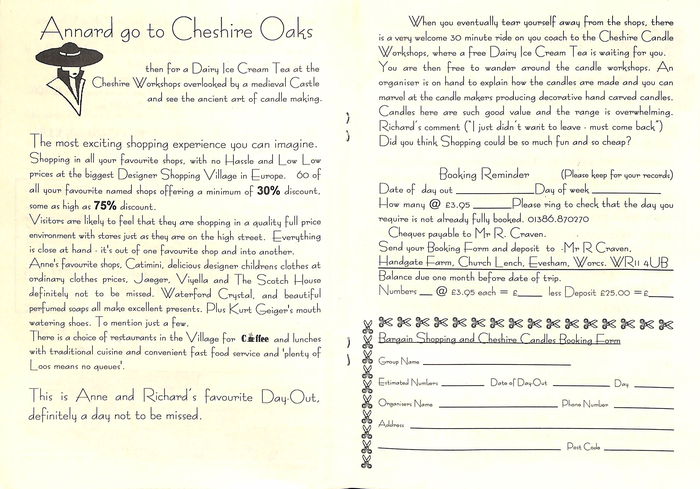 Annard go to Cheshire Oaks
then for a Dairy Ice Cream Tea at the
Cheshire Workshops overlooked by a medieval Castle
and see the ancient art of candle making.
The most exciting shopping experience you can imagine.
Shopping in all your favourite shops, with no Hassle and Low Low
prices at the biggest Designer Shopping Village in Europe. 60 of
all your favourite named shops offering a minimum of 30% discount,
some as high as 75% discount.
Visitors are likely to feel that they are shopping in a quality full price
environment with stores just as they are on the high street. Everything
is close at hand - it's out of one favourite shop and into another.
Anne's favourite shops, Catimini, delicious designer childrens clothes at
ordinary clothes prices, Jaeger, Viyella and The Scotch House
definitely not to be missed. Waterford Crystal, and beautiful
perfumed soaps all make excellent presents. Plus Kurt Geiger's mouth
watering shoes. To mention just a few.
There is a choice of restaurants in the Village for Coffee and lunches
with traditional cuisine and convenient fast food service and 'plenty of
Loos means no queues'.
This is Anne and Richard's favourite Day-Out,
definitely a day not to be missed.
When you eventually tear yourself away from the shops, there
is a very welcome 30 minute ride on you coach to the Cheshire Candle
Workshops, where a free Dairy Ice Cream Tea is waiting for you.
You are then free to wander around the candle workshops. An
organiser is on hand to explain how the candles are made and you can
marvel at the candle makers producing decorative hand carved candles.
Candles here are such good value and the range is overwhelming.
Richard's comment ("I just didn't want to leave - must come back")
Did you think Shopping could be so much fun and so cheap?
Booking Reminder (Please keep for your records)
Date of day out Day of week
How many @ £3.95 Please ring to check that the day you
require is not already fully booked. 01386.870270
Cheques payable to Mr R. Craven.
Send your Booking Form and deposit to -Mr R Craven,
Handgate Farm, Church Lench, Evesham, Worcs. WR11 4UB
Balance due one month before date of trip.
Numbers @ £3.95 each = £ less Deposit £75.00 = £
Bargain Shopping and Cheshire Candles Booking Form
Group Name
Estimated Numbers Date of Day Out Day
Organisers Name Phone Number
Address
Post Code